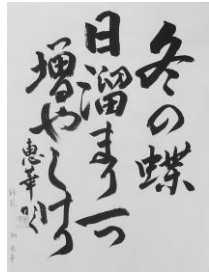 冬の蝶
日溜まり一つ
増やしけり
恵華吟